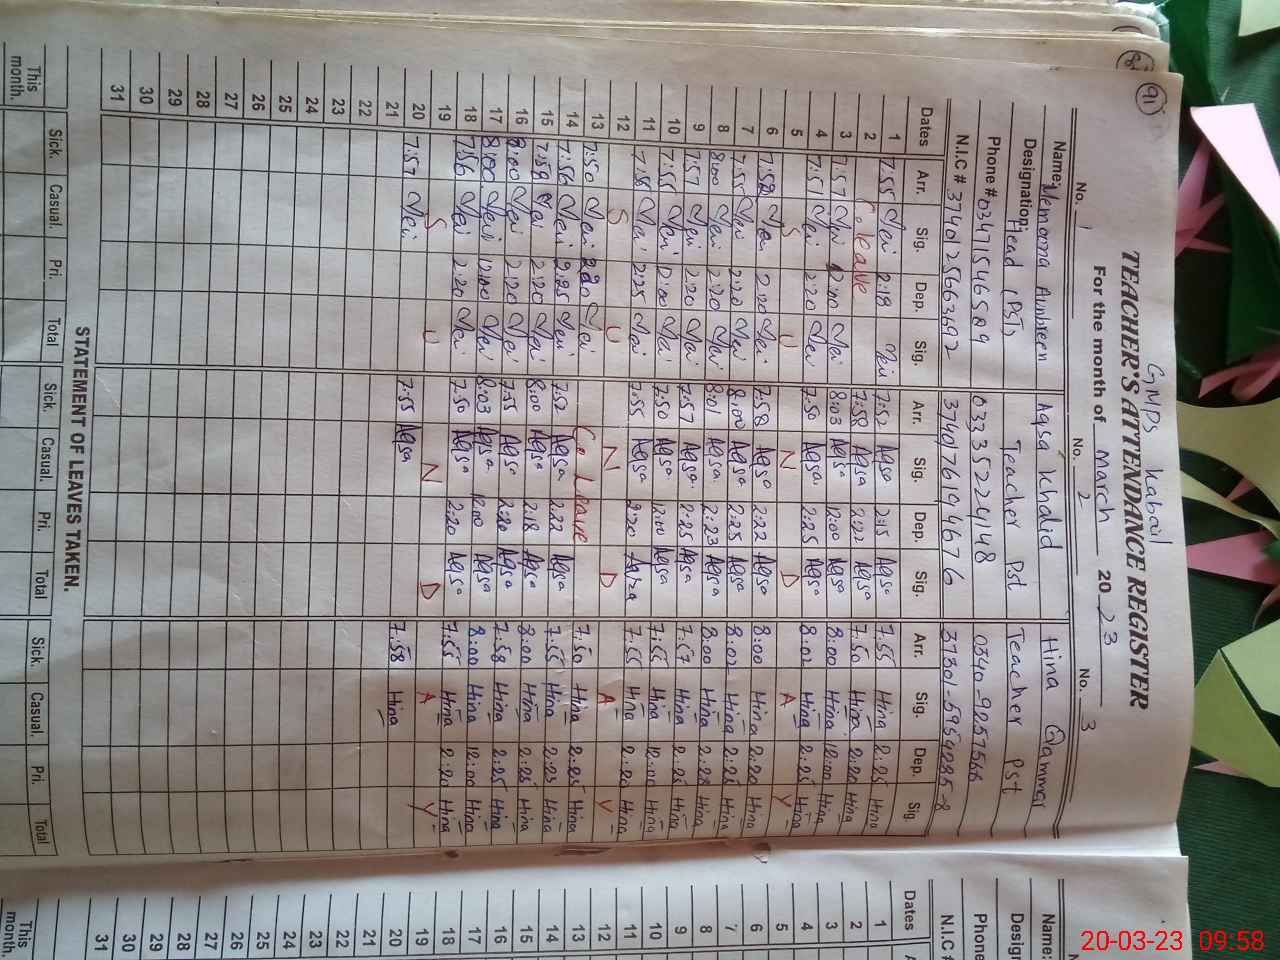 91
GMPS Kabail
TEACHER'S ATTENDANCE REGISTER
For the month of March 20 23
No. 1 No. 2 No. 3
Name: Memoona Aunbreen Aqsa Khalid Hina Qammar
Designation: Head (PST) Teacher Pst Teacher Pst
Phone # 03471546589 03335224148 0340-9257565
N.I.C # 3740125663692 3740176191467 6 37301-5954235-8
Dates Arr. Sig. Dep. Sig. Arr. Sig. Dep. Sig. Arr. Sig. Dep. Sig
1 7:55 2:18 7:52 Aqsa 2:15 Aqsa 7:55 Hina 2:25 Hina
2 C. leave 7:58 Aqsa 2:22 Aqsa 7:50 Hina 2:20 Hina
3 7:57 12:00 8:03 Aqsa 12:00 Aqsa 8:00 Hina 12:00 Hina
4 7:57 2:20 7:50 Aqsa 2:25 Aqsa 8:02 Hina 2:25 Hina
5 S U N D A Y
6 7:52 2:20 7:58 Aqsa 2:22 Aqsa 8:00 Hina 2:20 Hina
7 7:55 2:20 8:00 Aqsa 2:25 Aqsa 8:02 Hina 2:25 Hina
8 8:00 2:20 8:01 Aqsa 2:23 Aqsa 8:00 Hina 2:28 Hina
9 7:57 2:20 7:57 Aqsa 2:25 Aqsa 7:57 Hina 2:25 Hina
10 7:55 12:00 7:50 Aqsa 12:00 Aqsa 7:55 Hina 12:00 Hina
11 7:58 2:25 7:55 Aqsa 2:20 Aqsa 7:55 Hina 2:20 Hina
12 S U N D A Y
13 7:50 2:20 C. Leave 7:50 Hina 2:25 Hina
14 7:56 2:25 7:52 Aqsa 2:22 Aqsa 7:55 Hina 2:23 Hina
15 7:58 2:20 8:00 Aqsa 2:18 Aqsa 8:00 Hina 2:25 Hina
16 8:00 2:20 7:55 Aqsa 2:20 Aqsa 7:58 Hina 2:25 Hina
17 8:00 12:00 8:03 Aqsa 12:00 Aqsa 8:00 Hina 12:00 Hina
18 7:56 2:20 7:50 Aqsa 2:20 Aqsa 7:55 Hina 2:20 Hina
19 S U N D A Y
20 7:57 7:55 Aqsa 7:58 Hina
21
22
23
24
25
26
27
28
29
30
31
STATEMENT OF LEAVES TAKEN.
Sick. Casual. Pri. Total Sick. Casual. Pri. Total Sick. Casual. Pri. Total
This month.
Name:
Design
Phone
N.I.C #
Dates
1
2
3
4
5
6
7
8
9
10
11
12
13
14
15
16
17
18
19
20
21
22
23
24
25
26
27
28
29
30
31
This month.
20-03-23 09:58